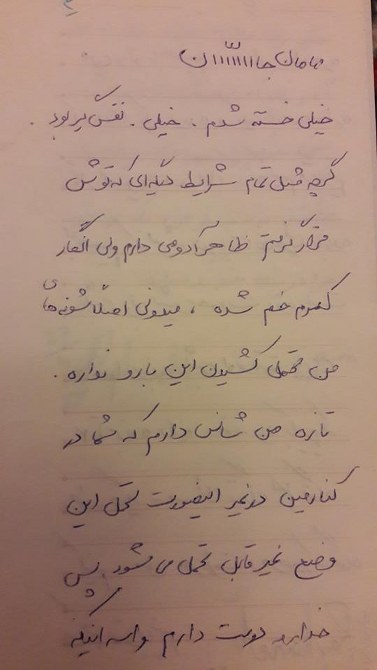 مامان جااااااان
خیلی خسته شدم. خیلی. نفس گیر بود.
گرچه مثل تمام شرایط دیگه ای که توش
قرار گرفتم ظاهر آرومی دارم ولی انگار
کمرم خم شده، میدونی اصلا شونه های
من تحمل کشیدن این بارو نداره.
تازه من شانس دارم که شما در
کنارمین در غیر اینصورت تحمل این
وضع غیر قابل تحمل می شود پس
خدارو دوست دارم واسه اینکه